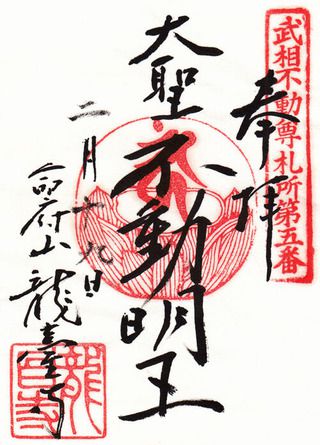 武相不動尊札所第五番
奉拝
大聖不動明王
二月十九日
命府山龍臺寺